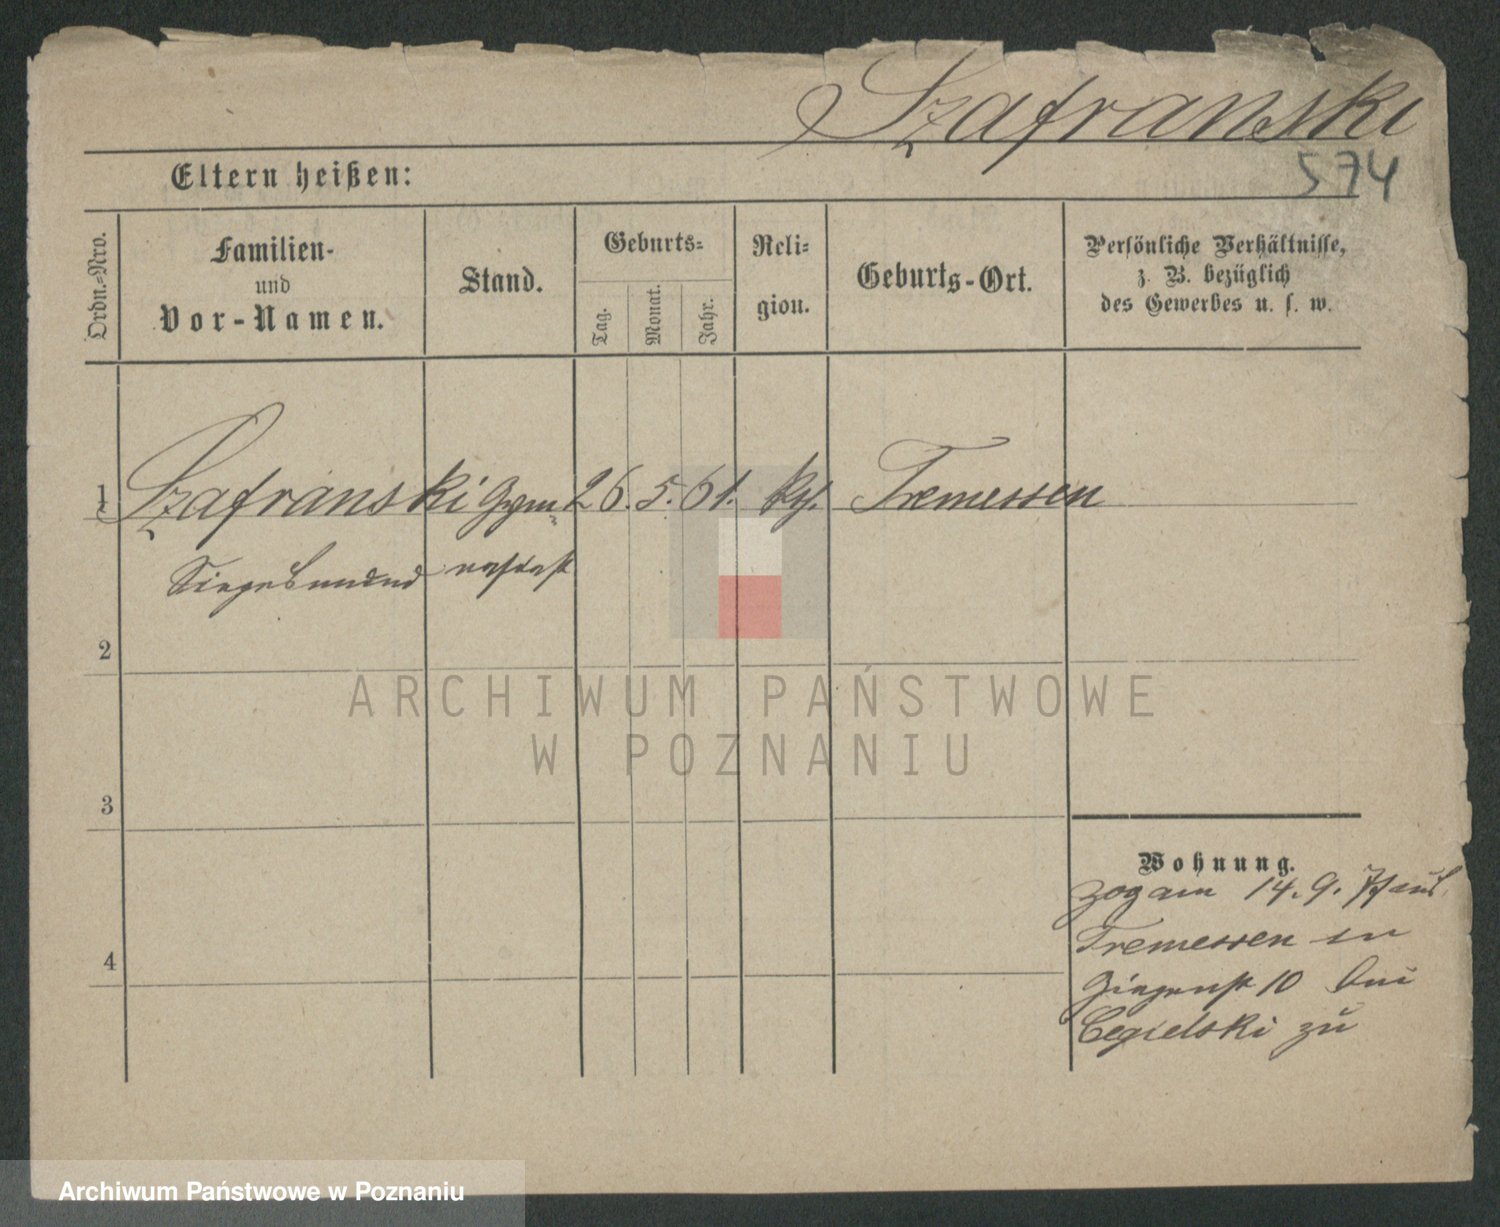 Szafranski
574
Eltern heißen:
Ordn.-Nro.
Familien-
und
Vor-Namen.
Stand.
Geburts-
Tag.
Monat.
Jahr.
Reli-
gion.
Geburts-Ort.
Persönliche Verhältnisse,
z. B. bezüglich
des Gewerbes u. s. w.
1 Szafranski Gym- 26. 5. 61. Tremessen
Siegesmund nasiast
2
ARCHIWUM PAŃSTWOWE
W POZNANIU
3
Wohnung.
zog am 14. 9. 77 aus
Tremessen in
4
10 bei
Cegielski zu
Archiwum Państwowe w Poznaniu